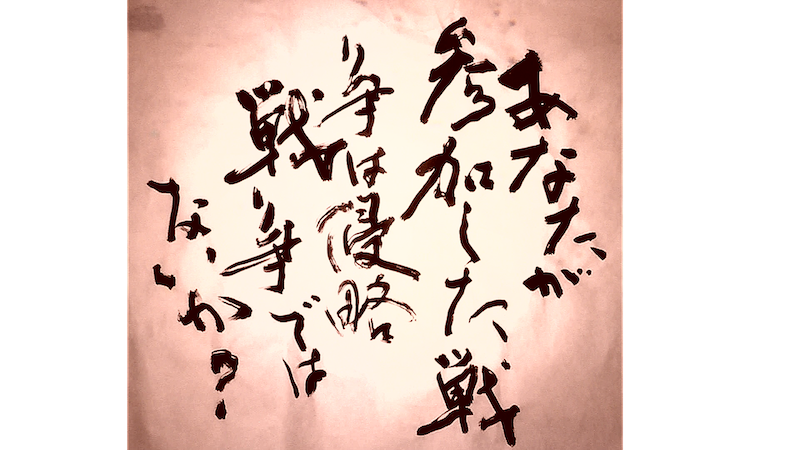 あなたが
参加した戦
争は侵略
戦争では
ないか?